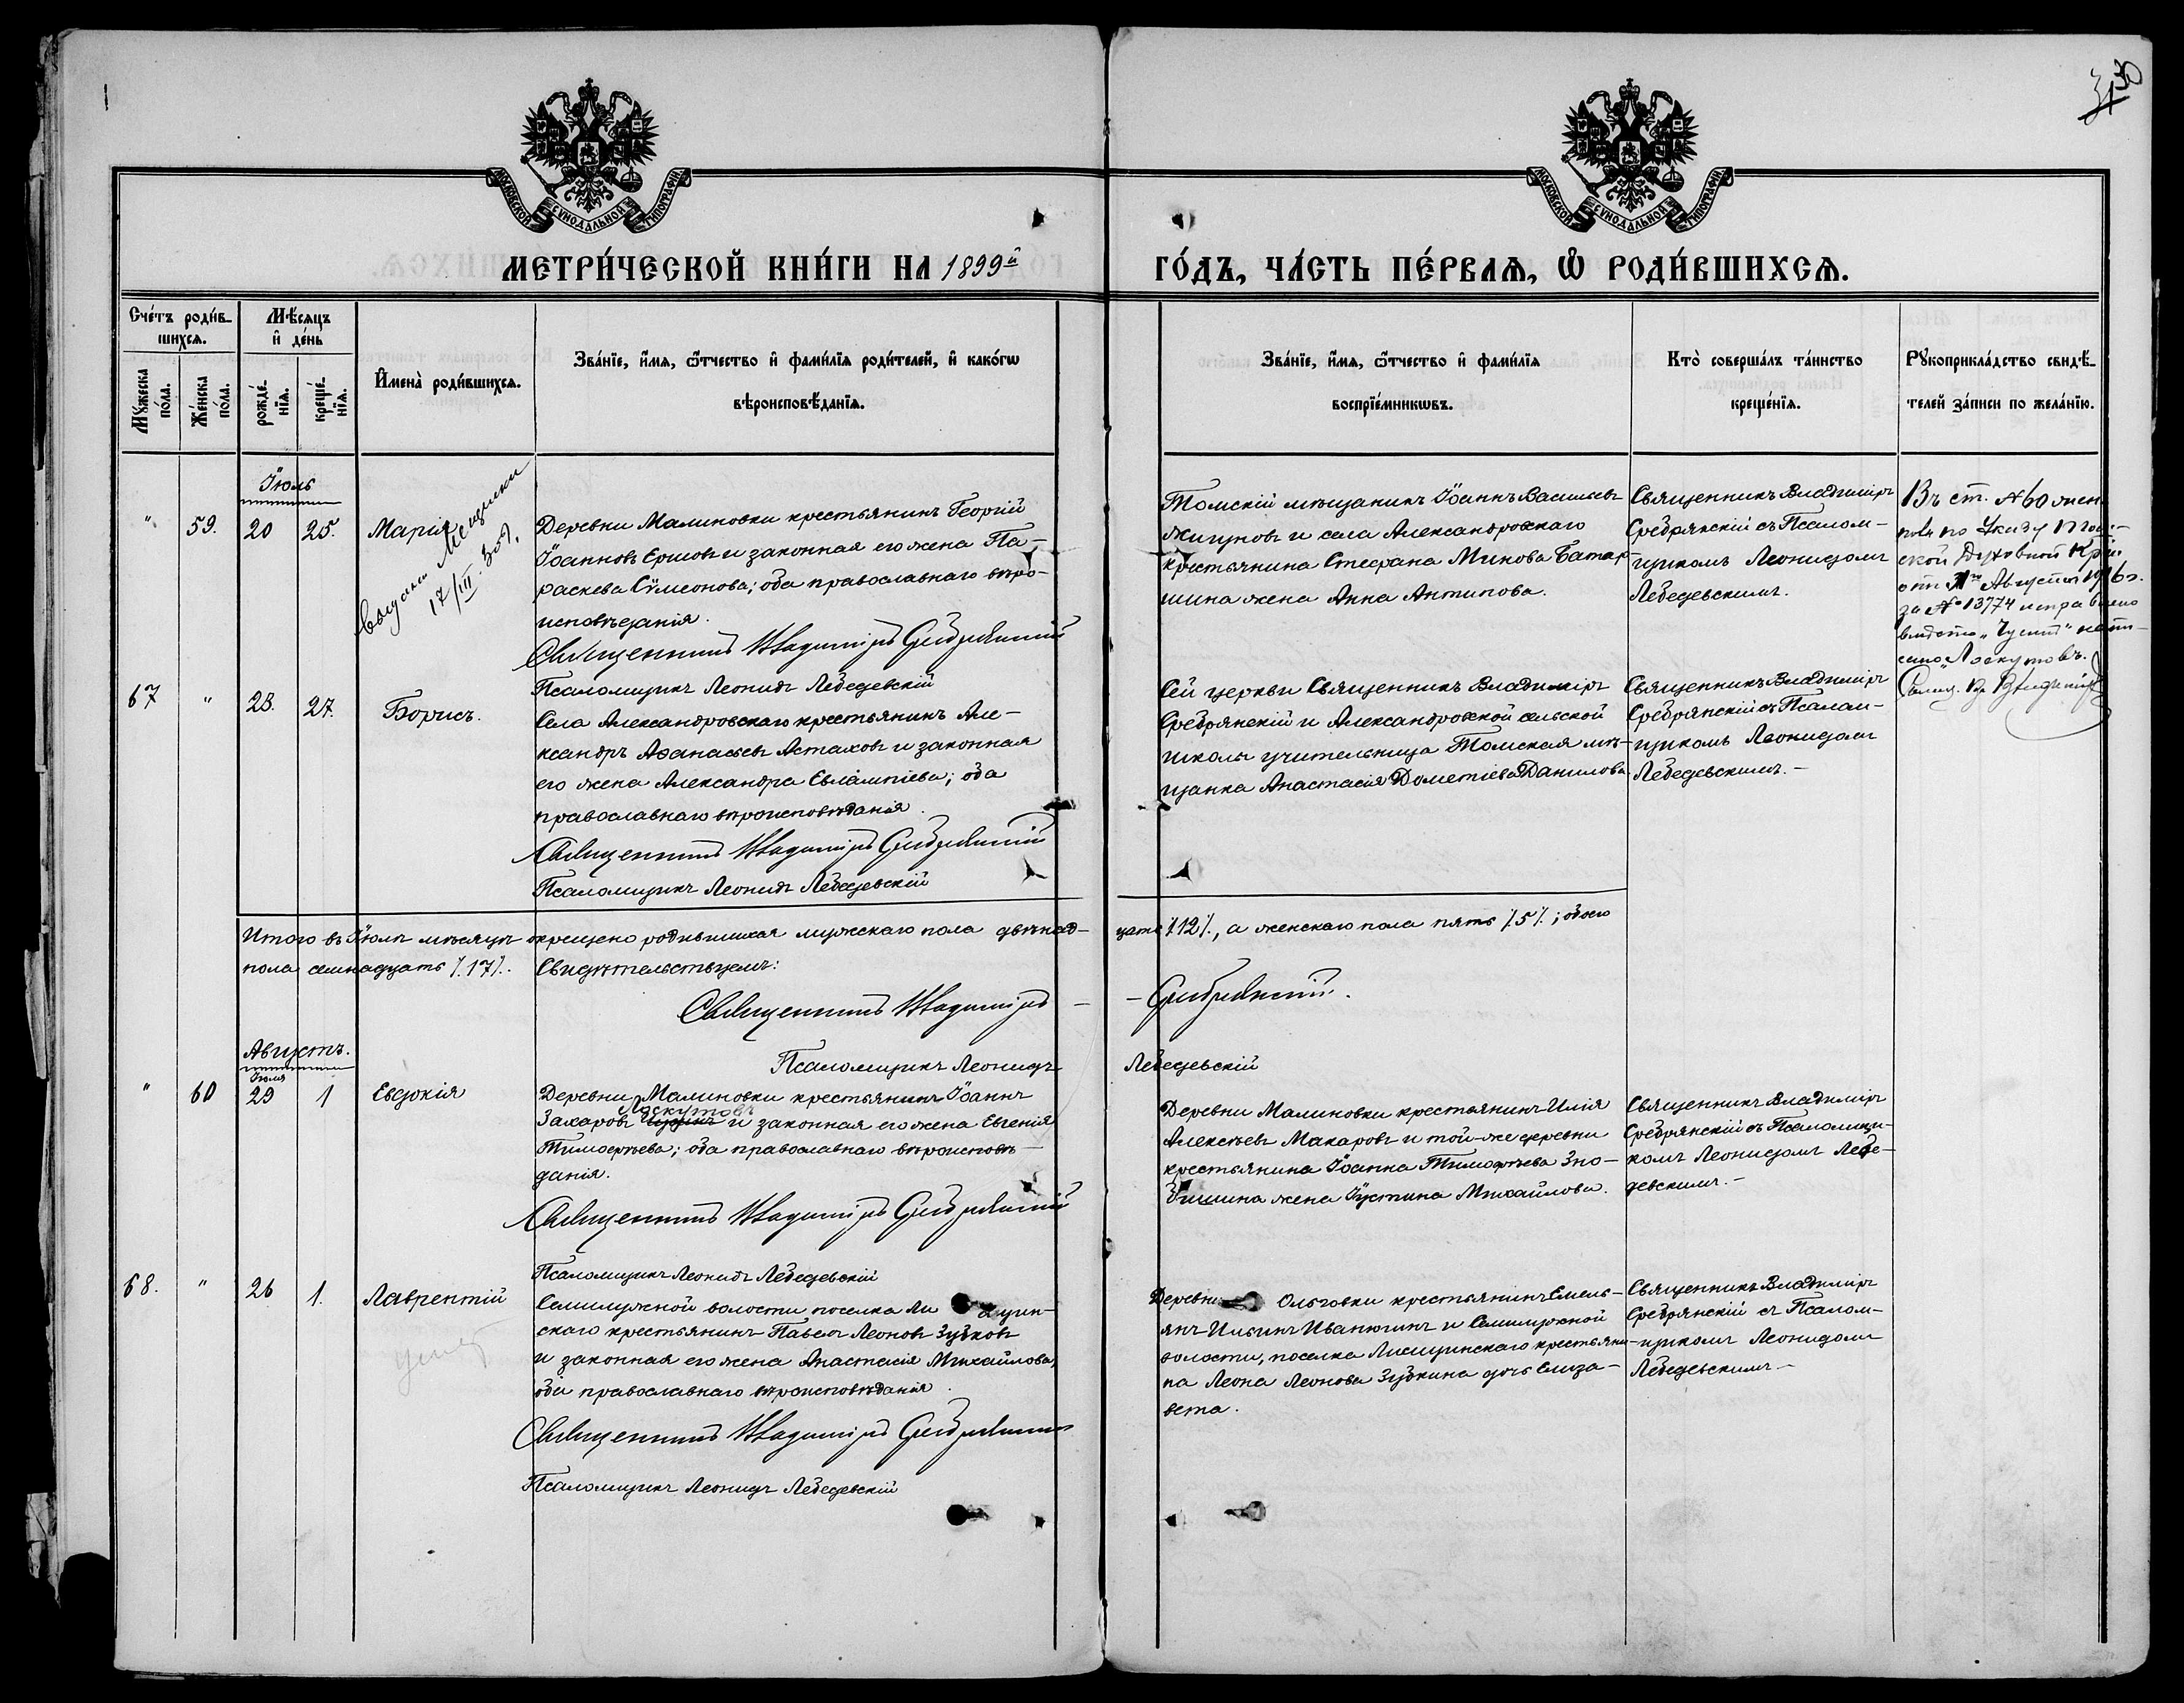 30
31
МОСКОВСКОЙ СѴНОДАЛЬНОЙ ТИПОГРАФІИ
МОСКОВСКОЙ СѴНОДАЛЬНОЙ ТИПОГРАФІИ
МЕТРИ́ЧЕСКОЙ КНИ́ГИ НА 1899й
ГО́ДЪ, ЧА́СТЬ ПЕ́РВАѦ, Ѡ РОДИ́ВШИХСѦ.
Сче́тъ роди́в-
шихсѧ.
Мꙋ́жеска по́ла.
Же́нска по́ла.
Мѣ́сѧцъ
и҆ де́нь
рожде́-
нїѧ.
креще́-
нїѧ.
И҆мена̀ роди́вшихсѧ.
Зва́нїе, и҆́мѧ, ѻ҆́тчество и҆ фами́лїѧ роди́телей, и҆ како́гѡ
вѣроисповѣ́данїѧ.
Зва́нїе, и҆́мѧ, ѻ҆́тчество и҆ фами́лїѧ
воспрїе́мникѡвъ.
Кто̀ соверша́лъ та́инство
креще́нїѧ.
Рꙋкоприкла́дство свидѣ́-
телей за́писи по жела́нїю.
Іюль
" 59. 20 25. Марія
17/III
Деревни Малиновки крестьянинъ Георгій
Іоанновъ Ершовъ и законная его жена Па-
раскева Сѵмеонова; оба православнаго вѣро-
исповѣданія.
Священникъ Владиміръ Сребрянскій
Псаломщикъ Леонидъ Лебедевскій
Томскій мѣщанинъ Іоаннъ Васильевъ
Жигуновъ и села Александровскаго
крестьянина Стефана Минова Батар-
шина жена Анна Антипова.
Священникъ Владиміръ
Сребрянскій съ Псалом-
щикомъ Леонидомъ
Лебедевскимъ.
Въ ст. № 60 жен.
пола по Указу
ской Духовной
отъ Августа 1916 г.
за № 13774 исправлено
вмѣсто напи-
сано „Лоскутовъ.
67 " 23. 27. Борисъ.
Села Александровскаго крестьянинъ Але-
ксандръ Аѳанасьевъ Астаховъ и законная
его жена Александра Евлампіева; оба
православнаго вѣроисповѣданія.
Священникъ Владиміръ Сребрянскій
Псаломщикъ Леонидъ Лебедевскій
Сей церкви Священникъ Владиміръ
Сребрянскій и Александровской сельской
школы учительница Томская мѣ-
щанка Анастасія Дометіева Данилова.
Священникъ Владиміръ
Сребрянскій съ Псалом-
щикомъ Леонидомъ
Лебедевскимъ.-
Итого въ Іюлѣ мѣсяцѣ окрещено родившихся мужскаго пола двѣнад-
цать /.12/., а женскаго пола пять /.5/.; обоего
пола семнадцать /.17/. Свидѣтельствуемъ:
Священникъ Владиміръ - - Сребрянскій.
Псаломщикъ Леонидъ Лебедевскій
Августъ.
Іюля
" 60 29 1 Евдокія
Деревни Малиновки крестьянинъ Іоаннъ
Лоскутовъ
Захаровъ и законная его жена Евгенія
Тимофѣева; оба православнаго вѣроисповѣ-
данія.
Священникъ Владиміръ Сребрянскій
Псаломщикъ Леонидъ Лебедевскій
Деревни Малиновки крестьянинъ Илія
Алексѣевъ Макаровъ и той-же деревни
крестьянина Іоанна Тимофѣева Зно-
бишина жена Іустина Михайлова.
Священникъ Владиміръ
Сребрянскій съ Псаломщи-
комъ Леонидомъ Лебе-
девскимъ.-
68. " 26 1. Лаврентій
Семилужной волости поселка Ли щин-
скаго крестьянинъ Павелъ Леоновъ Зубковъ
и законная его жена Анастасія Михайлова,
оба православнаго вѣроисповѣданія.
Священникъ Владиміръ Сребрянскій
Псаломщикъ Леонидъ Лебедевскій
Деревни Ольговки крестьянинъ Емель-
янъ Ильинъ Иванюгинъ и Семилужной
волости, поселка Лисицинскаго крестьяни-
на Леона Леонова Зубкина дочь Елиза-
вета.
Священникъ Владиміръ
Сребрянскій съ Псалом-
щикомъ Леонидомъ
Лебедевскимъ-